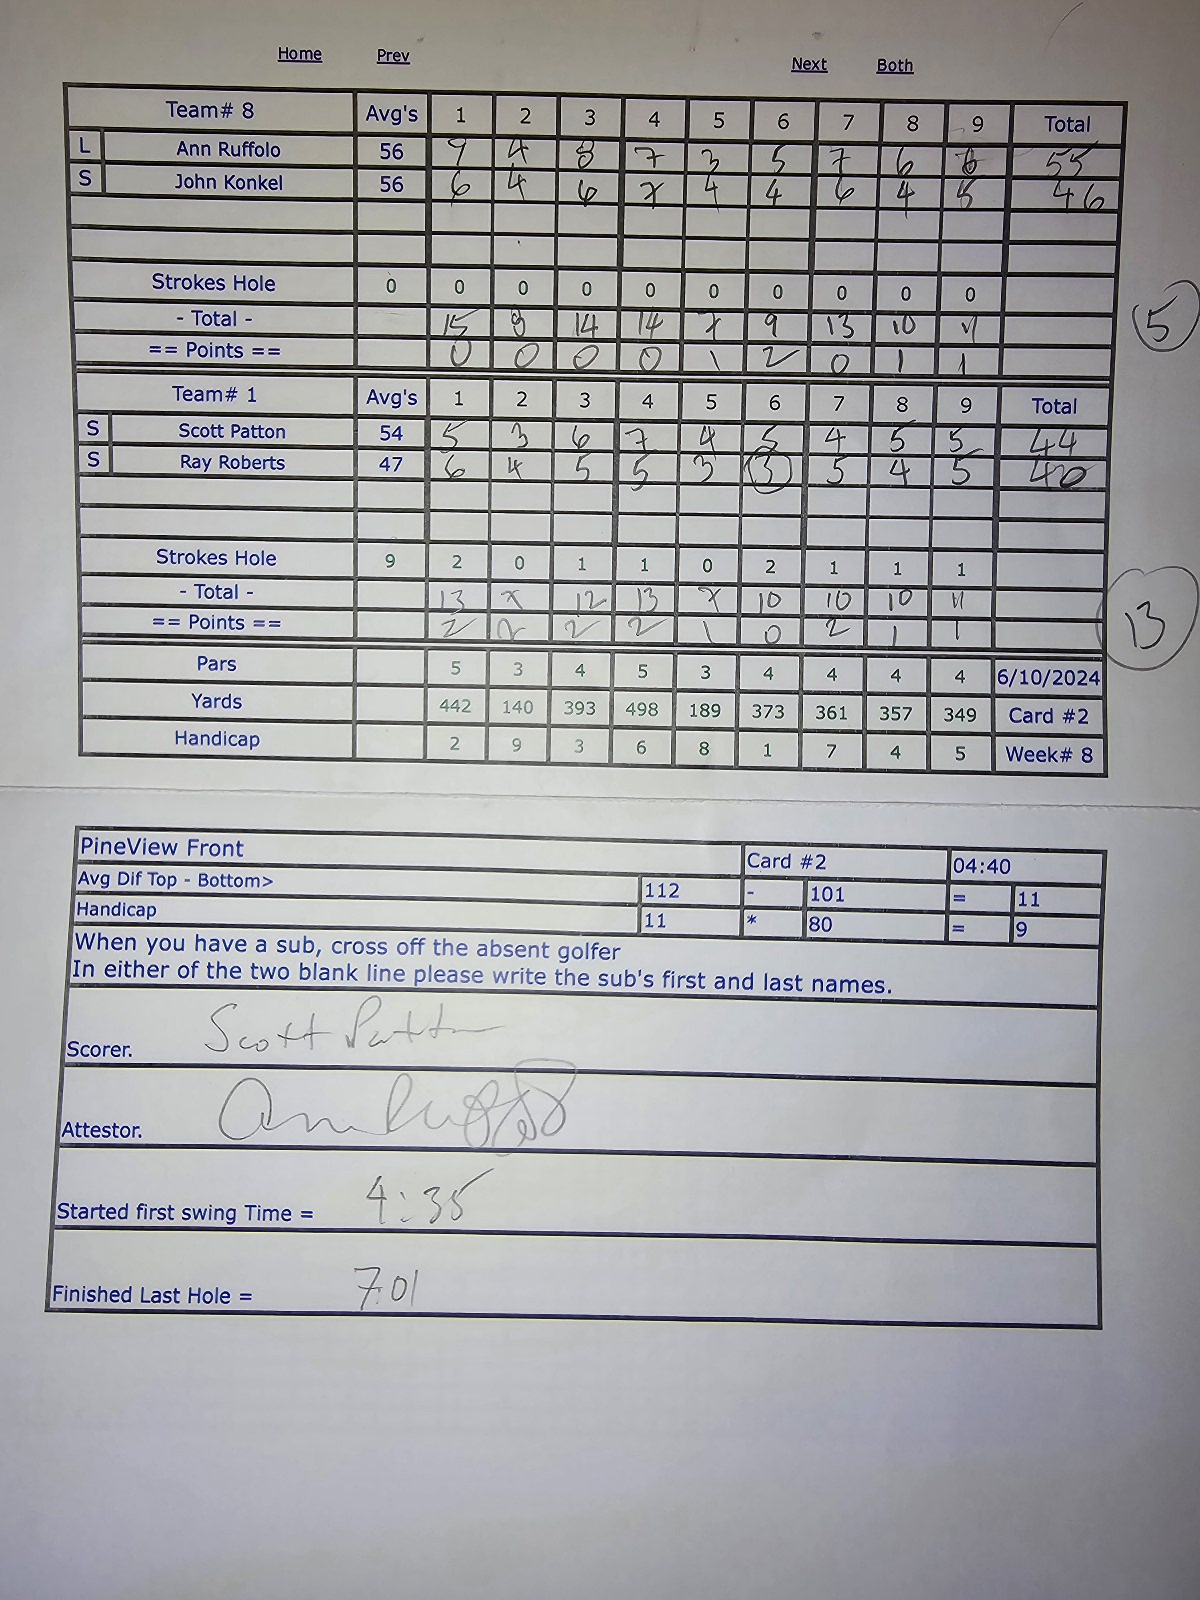 Home Prev Next Both
Team# 8 Avg's 1 2 3 4 5 6 7 8 9 Total
L Ann Ruffolo 56 9 4 8 7 3 5 7 6 6 55
S John Konkel 56 6 4 6 7 4 4 6 4 5 46
Strokes Hole 0 0 0 0 0 0 0 0 0 0
- Total - 15 8 14 14 7 9 13 10 11
5
== Points == 0 0 0 0 1 2 0 1 1
Team# 1 Avg's 1 2 3 4 5 6 7 8 9 Total
S Scott Patton 54 5 3 6 7 4 5 4 5 5 44
S Ray Roberts 47 6 4 5 5 3 3 5 4 5 40
Strokes Hole 9 2 0 1 1 0 2 1 1 1
- Total - 13 7 12 13 7 10 10 10 11
13
== Points == 2 2 2 2 1 0 2 1 1
Pars 5 3 4 5 3 4 4 4 4 6/10/2024
Yards 442 140 393 498 189 373 361 357 349 Card #2
Handicap 2 9 3 6 8 1 7 4 5 Week# 8
PineView Front Card #2 04:40
Avg Dif Top - Bottom> 112 - 101 = 11
Handicap 11 * 80 = 9
When you have a sub, cross off the absent golfer
In either of the two blank line please write the sub's first and last names.
Scorer. Scott Patton
Attestor. Ann Ruffolo
Started first swing Time = 4:35
Finished Last Hole = 7:01